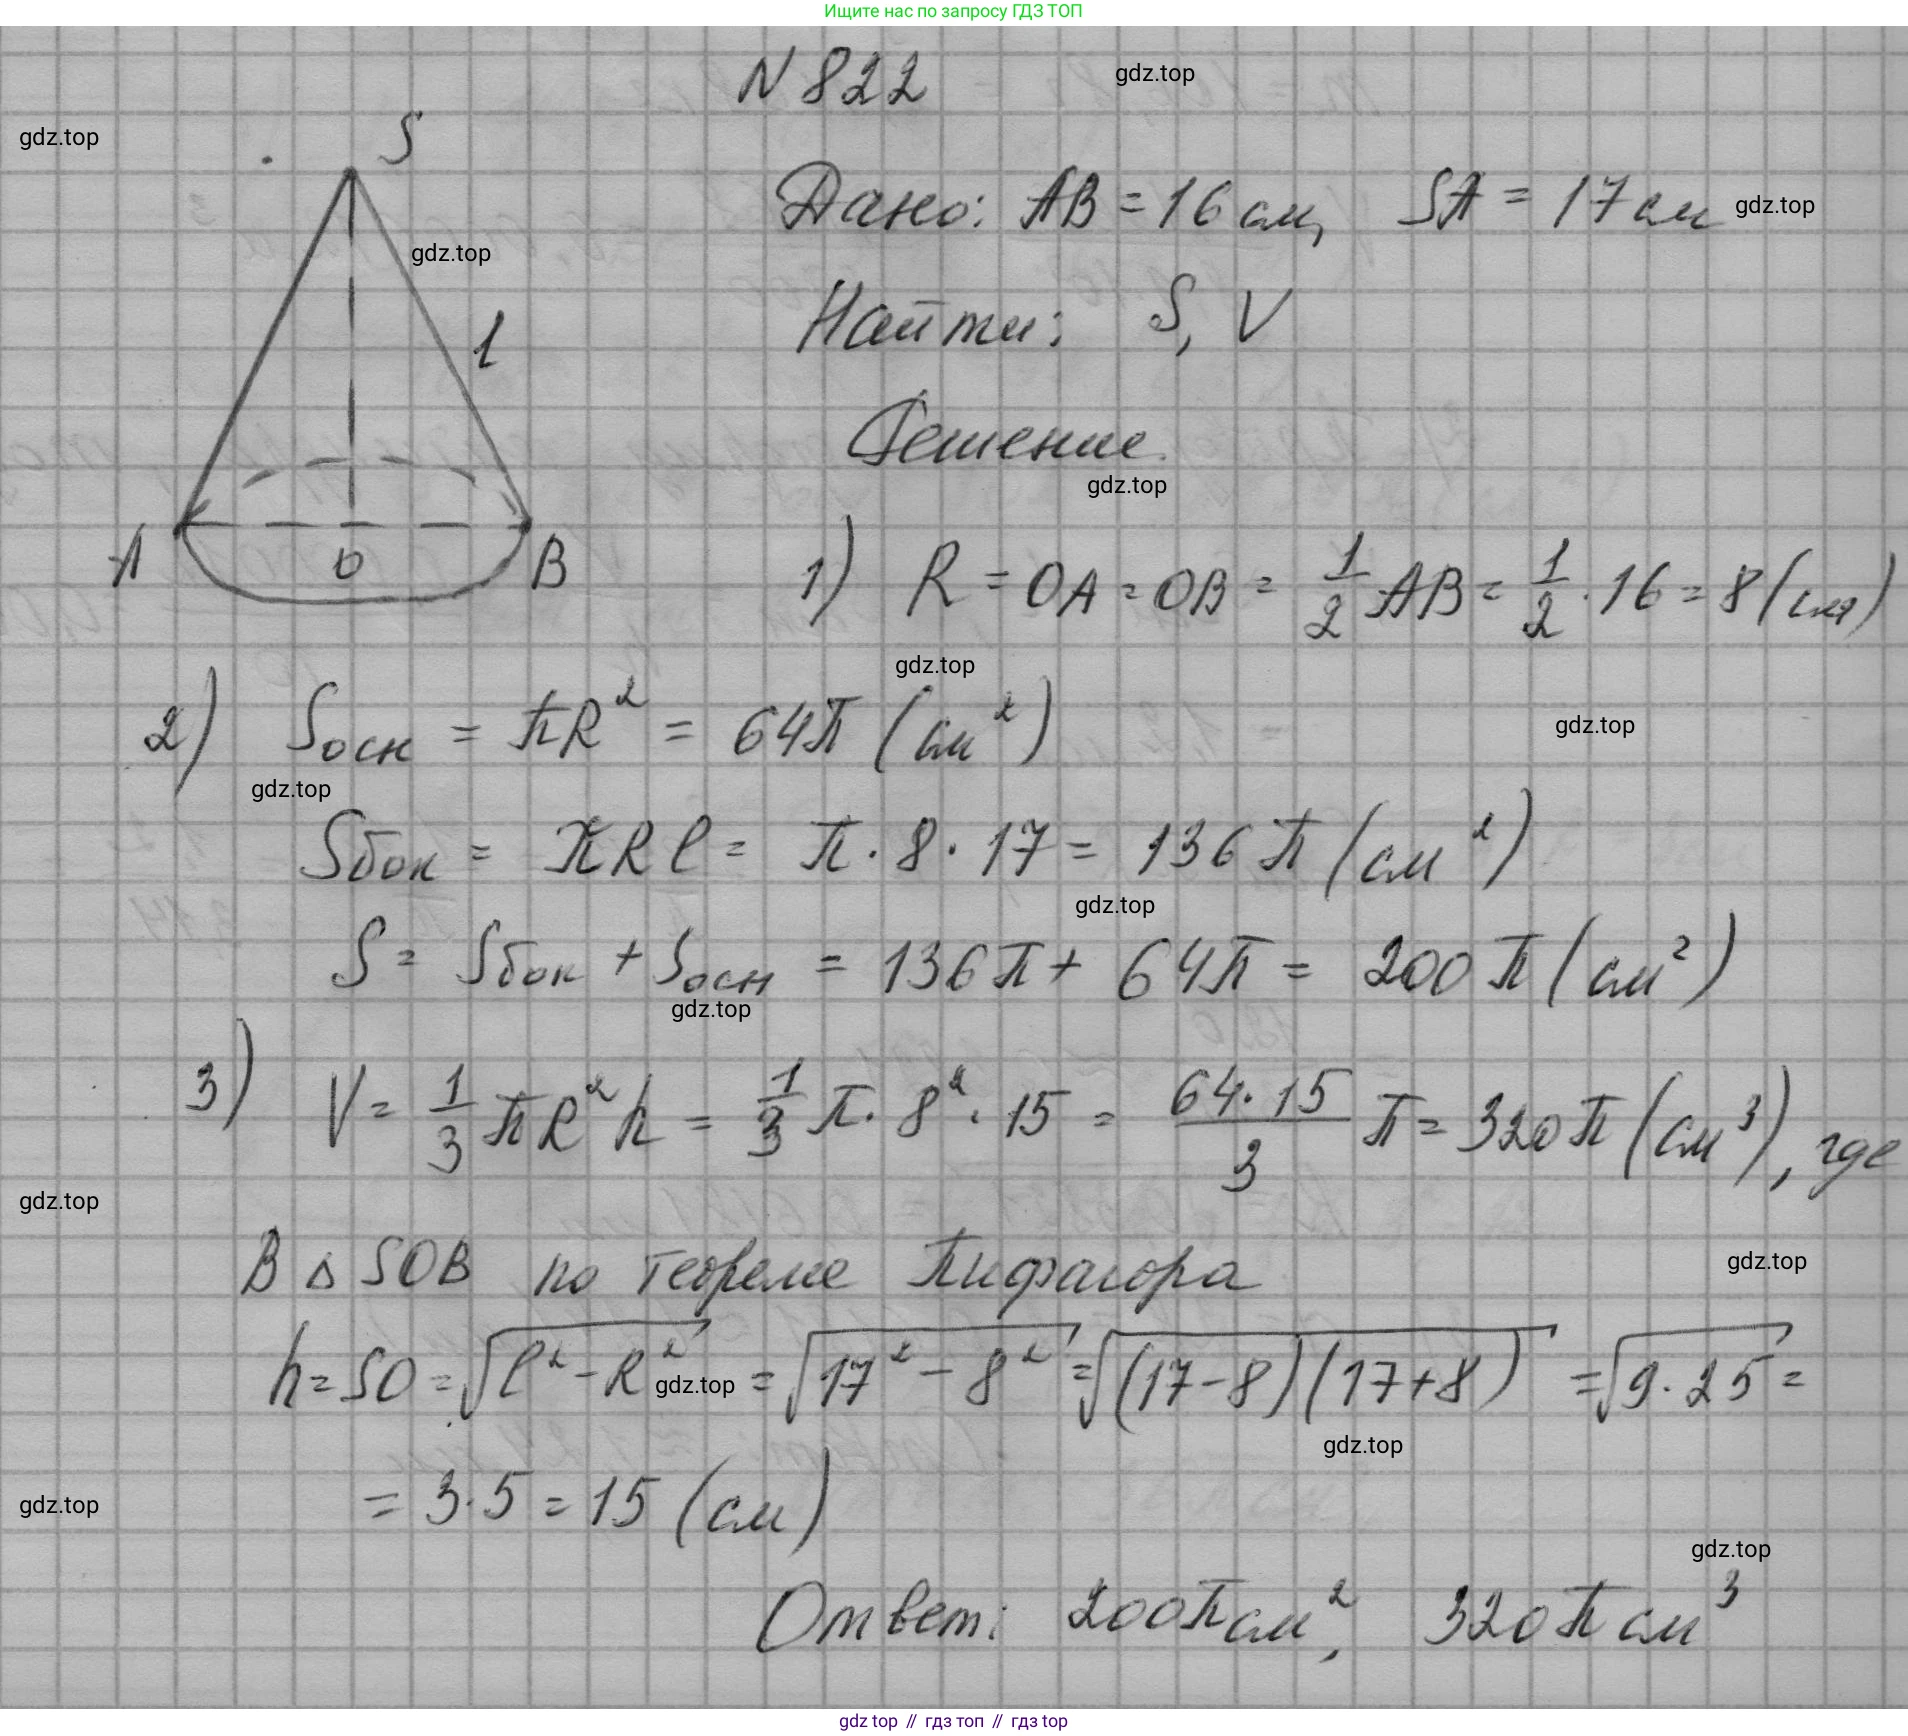 Ищите нас по запросу ГДЗ ТОП
N 822
gdz.top
gdz.top
S
Дано: AB = 16 см, SA = 17 см
gdz.top
gdz.top
Найти: S, V
l
Решение
gdz.top
A O B
1) R = OA = OB = 1/2 AB = 1/2 · 16 = 8 (см)
gdz.top
2) Sосн = πR² = 64π (см²)
gdz.top
gdz.top
Sбок = πRl = π · 8 · 17 = 136π (см²)
gdz.top
S = Sбок + Sосн = 136π + 64π = 200π (см²)
gdz.top
3) V = 1/3 πR²h = 1/3 π · 8² · 15 = (64 · 15)/3 π = 320π (см³), где
gdz.top
В △ SOB по теореме Пифагора
gdz.top
h = SO = √(l² - R²) = √(17² - 8²) = √((17-8)(17+8)) = √(9 · 25) =
gdz.top
gdz.top
= 3 · 5 = 15 (см)
gdz.top
gdz.top
Ответ: 200π см², 320π см³
gdz top // гдз топ // гдз top